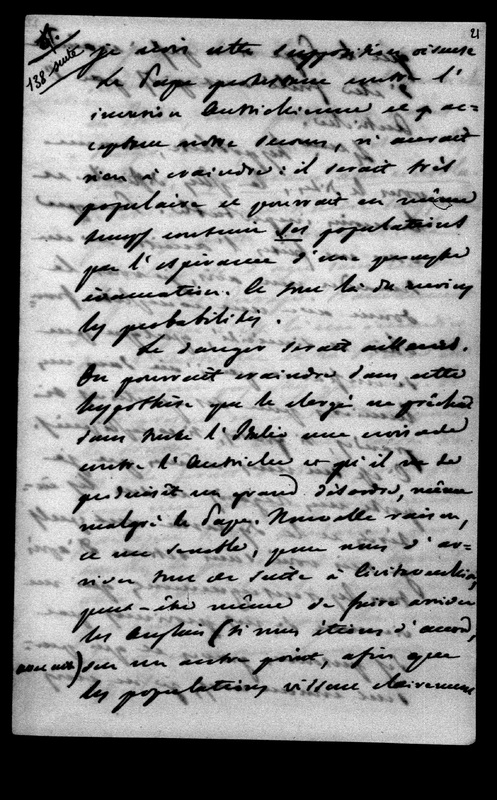 21
138 suite
je crois cette supposition oiseuse
Le Pape protestant contre l'
invasion Autrichienne et y ac=
ceptant notre secours, n'aurait
rien à craindre : il serait très
populaire et pourrait en même
temps contenir ses populations
par l'espérance d'une prompte
évacuation. Ce sont là du moins
les probabilités.
Le danger serait ailleurs.
On pourrait craindre dans cette
hypothèse que le clergé ne prêchât
dans toute l'Italie une croisade
contre l'Autriche et qu'il ne se
produisît un grand désordre, même
malgré le Pape. Nouvelle raison,
ce me semble, pour nous d'ar=
river tout de suite à Civitavecchia,
peut-être même de faire arriver
les Anglais (si nous étions d'accord
avec eux) sur un autre point, afin que
les populations vissent clairement